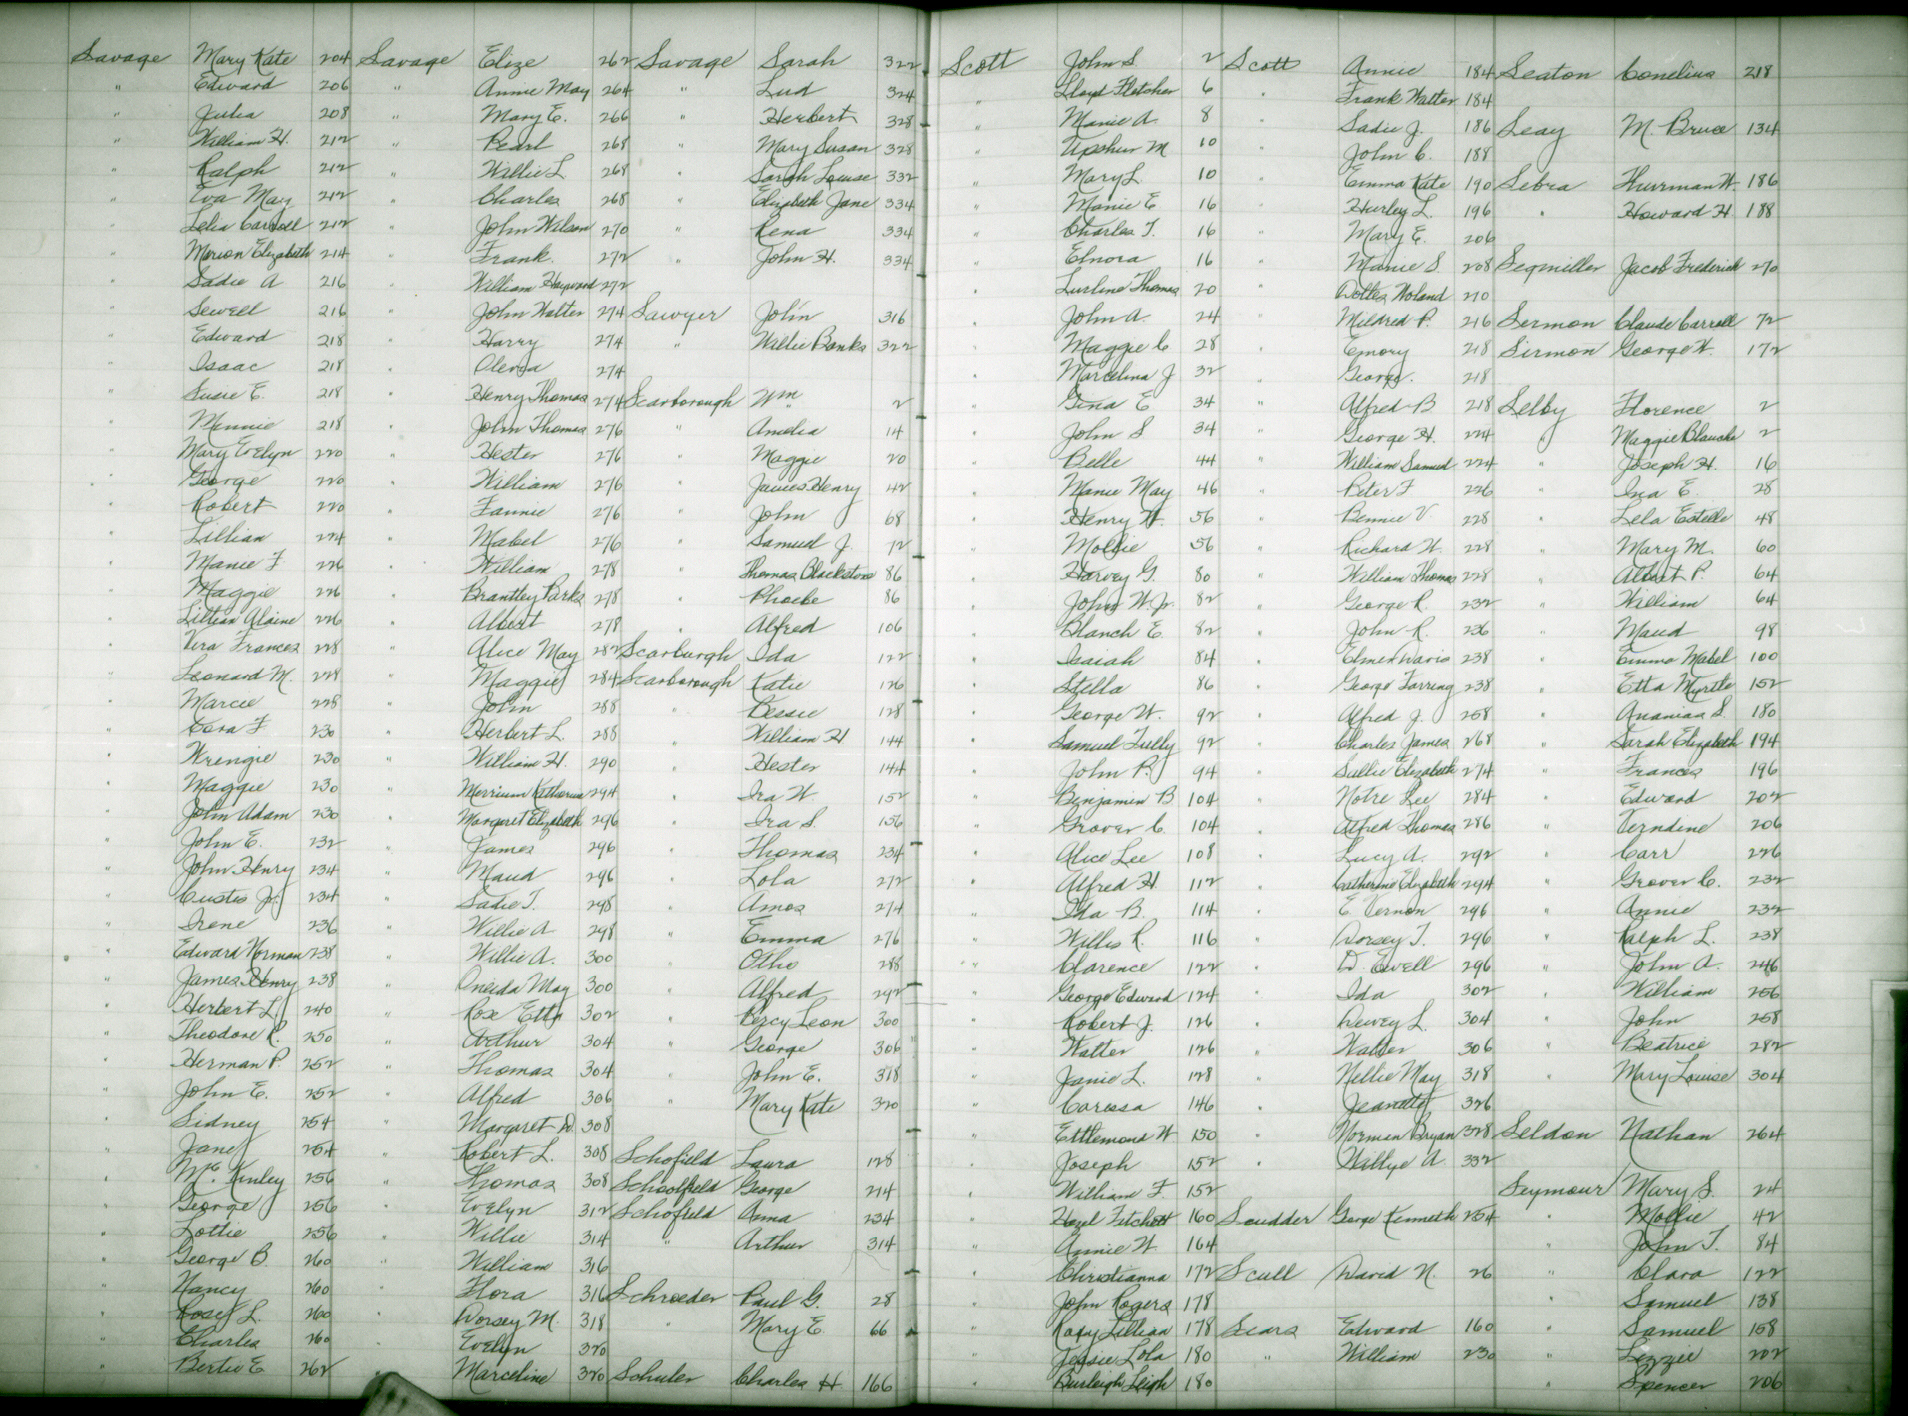 Savage Mary Kate 204
" Edward 206
" Julia 208
" William H. 212
" Ralph 212
" Eva May 212
" Lelia Carroll 212
" Marion Elizabeth 214
" Sadie A 216
" Sewell 216
" Edward 218
" Isaac 218
" Susie E. 218
" Minnie 218
" Mary Evelyn 220
" George 220
" Robert 220
" Lillian 224
" Manie F 226
" Maggie 226
" Lillian Alaine 226
" Vera Frances 228
" Leonard M. 228
" Marcie 228
" Cora F 230
" Wrengie 230
" Maggie 230
" John Adam 230
" John E. 232
" John Henry 234
" Custis Jr. 234
" Irene 236
" Edward Norman 238
" James Henry 238
" Herbert L. 240
" Theodore R. 250
" Herman P. 252
" John E. 252
" Sidney 254
" Jane 254
" McKinley 256
" George 256
" Lottie 256
" George B. 260
" Nancy 260
" Rosey L. 260
" Charles 260
" Bertie E 262
Savage Elize 262
" Annie May 264
" Mary E. 266
" Pearl 268
" Willie L. 268
" Charles 268
" John Wilson 270
" Frank 272
" William Haywood 272
" John Walter 274
" Harry 274
" Olevia 274
" Henry Thomas 274
" John Thomas 276
" Hester 276
" William 276
" Fannie 276
" Mabel 276
" William 278
" Brantley Parks 278
" Albert 278
" Alice May 282
" Maggie 284
" John 288
" Herbert L. 288
" William H. 290
" Merrium Katherine 294
" Margaret Elizabeth 296
" James 296
" Maud 296
" Sadie T. 298
" Willie A. 298
" Willie A. 300
" Oneida May 300
" Rose Etta 302
" Arthur 304
" Thomas 304
" Alfred 306
" Margaret D. 308
" Robert L. 308
" Thomas 308
" Evelyn 312
" Willie 314
" William 316
" Flora 316
" Dorsey M. 318
" Evelyn 320
" Marceline 320
Savage Sarah 322
" Lud 324
" Herbert 328
" Mary Susan 328
" Sarah Louise 332
" Elizabeth Jane 334
" Rena 334
" John H. 334
Sawyer John 316
" Willie Banks 322
Scarborough Wm 2
" Amelia 14
" Maggie 20
" James Henry 42
" John 68
" Samuel J. 72
" Thomas Blackstone 86
" Phoebe 86
" Alfred 106
Scarburgh Ida 122
Scarborough Katie 126
" Bessie 128
" William H 144
" Hester 144
" Ira W 152
" Ira S. 156
" Thomas 234
" Lola 272
" Amos 274
" Emma 276
" Otho 288
" Alfred 292
" Percy Leon 300
" George 306
" John E. 318
" Mary Kate 320
Schofield Laura 128
Schoolfield George 214
Schofield Anna 234
" Arthur 314
Schroeder Paul G. 28
" Mary E. 66
Schuler Charles H. 166
Scott John S. 2
" Lloyd Fletcher 6
" Manie A. 8
" Upshur M 10
" Mary L. 10
" Manie E 16
" Charles T. 16
" Elnora 16
" Lurline Thomas 20
" John A. 24
" Maggie C 28
" Marcelina J 32
" Gina E 34
" John S 34
" Belle 44
" Manie May 46
" Henry W. 56
" Mollie 56
" Harvey G. 80
" John W. Jr. 82
" Blanch E. 82
" Isaiah 84
" Stella 86
" George W. 92
" Samuel Tully 92
" John P. 94
" Benjamin B 104
" Grover C. 104
" Alice Lee 108
" Alfred H. 112
" Ida B. 114
" Willis R. 116
" Clarence 122
" George Edward 124
" Robert J. 126
" Walter 126
" Janie L. 128
" Caressa 146
" Ettlemond W 150
" Joseph 152
" William F. 152
" Hazel Fitchett 160
" Annie W. 164
" Christianna 172
" John Rogers 178
" Roxy Lillian 178
" Jessie Lola 180
" Burleigh Leigh 180
Scott Annie 184
" Frank Walter 184
" Sadie J. 186
" John C. 188
" Emma Kate 190
" Hurley L. 196
" Mary E. 206
" Manie S. 208
" Woltz Noland 210
" Mildred P. 216
" Emory 218
" George 218
" Alfred B 218
" George H. 224
" William Samuel 224
" Peter F 226
" Bennie V 228
" Richard W. 228
" William Thomas 228
" George R. 232
" John R. 236
" Elmer Davis 238
" George Farring 238
" Alfred J. 258
" Charles James 268
" Sallie Elizabeth 274
" Notre Lee 284
" Alfred Thomas 286
" Lucy A. 292
" Catherine Elizabeth 294
" E. Vernon 296
" Dorsey T. 296
" D. Ewell 296
" Ida 302
" Dewey L. 304
" Walter 306
" Nellie May 318
" Jeanette 326
" Norman Bryan 328
" Willye A. 332
Scudder George Kenneth 254
Scull David N. 26
Sears Edward 160
" William 230
Seaton Conelius 218
Seay M. Bruce 134
Sebra Hurrman W. 186
" Howard H. 188
Segmiller Jacob Frederick 270
Sermon Claude Carroll 72
Sirmon George W. 172
Selby Florence 2
" Maggie Blanche 2
" Joseph H. 16
" Ina E. 28
" Lela Estelle 48
" Mary M. 60
" Albert P. 64
" William 64
" Maud 98
" Emma Mabel 100
" Etta Myrtle 152
" Ananias S. 180
" Sarah Elizabeth 194
" Frances 196
" Edward 202
" Verndine 206
" Carr 226
" Grover C. 232
" Annie 232
" Ralph L. 238
" John A. 246
" William 256
" John 258
" Beatrice 282
" Mary Louise 304
Seldon Nathan 264
Seymour Mary S. 24
" Mollie 42
" John T. 84
" Clara 122
" Samuel 138
" Samuel 158
" Lizzie 202
" Spencer 206